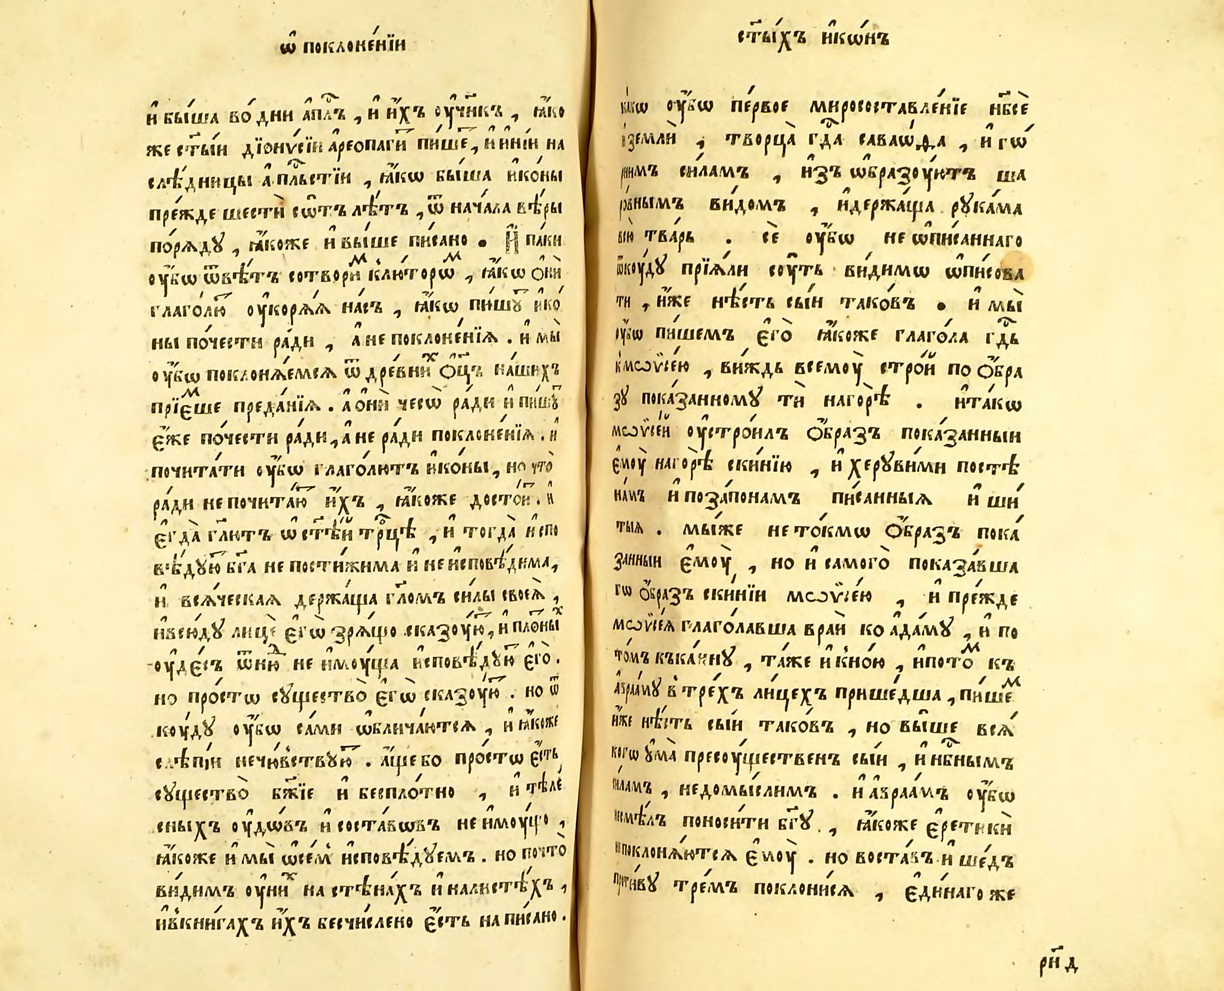 ѡ҆ поклоне́нїи
и҆ бы́ша во́ дни а҆пⷭ҇лъ , и҆ и҆́хъ ᲂу҆чн҃къ , ꙗ҆́ко
же ст҃ы́и дїѻнѵ́сїи а҆реопаги́ пи́ше , и҆ и҆ні́и на
слѣ́дницы а҆пⷭ҇льстїи , ꙗ҆́кѡ бы́ша и҆ко́ны
пре́жде шести̇̀ сѡ́тъ лѣ́тъ , ѿ нача́ла вѣ́ры
поря́дꙋ , ꙗ҆́коже и҆ вы́ше пи́сано . И҆ па́ки
ᲂу҆́бѡ ѿвѣ́тъ сотвори́ⷨ клю́торѡⷨ , ꙗ҆́кѡ ѻ҆ни̇̀
глаго́лю ᲂу҆коря́ꙗ на́съ , ꙗ҆́кѡ пи́шꙋ и҆ко́
ны поче́сти ра́ди , а҆ не поклоне́нїꙗ . и҆ мы̀
ᲂу҆́бѡ поклонѧ́емсѧ ѿ дре́вниⷯ ѻ҆ц҃ъ на́шихъ
прїе́мⷨше преда́нїꙗ . а҆ ѻ҆ни̇̀ чесѡ̀ ра́ди и҆ пи́шꙋ
є҆́же по́чести ра́ди , а҆ не ра́ди поклоне́нїꙗ . и҆
почита́ти ᲂу҆́бѡ глаго́лютъ и҆ко́ны , но что̀
ра́ди не почита́ю и҆́хъ , ꙗ҆́коже досто́и . и҆
є҆гда̀ гл҃ютъ ѡ҆ ст҃ѣ́й трⷪ҇цѣ , и҆ тогда̀ и҆спо
вѣ́дꙋю бг҃а не постижи́ма и҆ неисповѣ́дима,
и҆ всѧ́ческаꙗ держа́ща гл҃омъ си́лы своеѧ̀ ,
и҆ всю́дꙋ лицѐ є҆гѡ̀ зрѧ́що сказꙋ́ю, и҆ пло́ныⷯ
ᲂу҆де́съ ѿню́ⷣ не и҆мꙋ́ща и҆сповѣ́дꙋю є҆го̀.
но про́стѡ сꙋщество̀ є҆гѡ̀ сказꙋ́ю . но ѿ
кꙋ́дꙋ ᲂу҆́бѡ са́ми ѡ҆блича́ютсѧ , и҆ ꙗ҆́коже
слѣпі́и нечю́вствꙋю . а҆́ще бо про́стѡ є҆́сть
сꙋщество̀ бж҃їе и҆ беспло́тно , и҆ тѣле́
сныхъ ᲂу҆́дѡвъ и҆ соста́вѡвъ не и҆мꙋ́що ,
ꙗ҆́коже и҆ мы̀ ѡ҆ се́мъ и҆сповѣ́дꙋемъ . но почто̀
ви́димъ ᲂу҆ ни́ⷯ на стѣна́хъ и҆ на листѣ́хъ ,
и҆ в кни́гахъ и҆́хъ бесчи́слено є҆́сть написано .
ст҃ы́хъ и҆кѡ́нъ
ка́кѡ ᲂу҆́бѡ пе́рвое миросоставле́нїе нб҃сѐ
и҆ землѝ , творца̀ гдⷭ҇а саваѡ́ѳа , и҆ го́
рнимъ си́ламъ , и҆зъ ѡ҆бразꙋ́ютъ ша
ро́внымъ ви́домъ , и҆ держа́ща рꙋка́ма
всю̀ тва́рь . се̇̀ ᲂу҆́бѡ не ѡ҆пи́саннаго
ѿкꙋ́дꙋ прїѧ́ли сꙋ́ть ви́димѡ ѡ҆пи́сова
ти , и҆́же нѣ́сть сы́и тако́въ . и҆ мы̀
ᲂу҆́бѡ пи́шемъ є҆го̀ ꙗ҆́коже глаго́ла гдⷭ҇ь
к мѡѷсе́ю , ви́ждь всемꙋ̀ стро́й по ѻ҆́бра
зꙋ пока́занномꙋ ти̇̀ на горѣ̀ . и҆ та́кѡ
мѡѷсе́й ᲂу҆стро́илъ ѻ҆́бразъ пока́занныи
є҆мꙋ̀ на горѣ̀ ски́нїю , и҆ херꙋви́ми постѣ́
на́мъ и҆ поза́понамъ пи́санныꙗ и҆ ши́
тыꙗ . мы́же не то́кмѡ ѻ҆́бразъ пока́
занныи є҆мꙋ̀ , но и҆ самого̀ показа́вша
гѡ ѻ҆́бразъ ски́нїи мѡѷсе́ю , и҆ пре́жде
мѡѷсе́ꙗ глаго́лавша в раи́ ко а҆да́мꙋ , и҆ по
то́мъ къ ка́инꙋ , та́же и҆ к но́ю , и҆ пото́ⷨ къ
а҆враа́мꙋ в тре́хъ лице́хъ прише́дша , пи́шеⷨ
и҆́же нѣ́сть сы́и тако́въ , но вы́ше всѧ́
когѡ ᲂу҆ма̀ пресꙋ́щественъ сы́и , и҆ нбⷭ҇нымъ
си́ламъ , недомы́слимъ . и҆ а҆враа́мъ ᲂу҆́бѡ
не смѣ́лъ поноси́ти бг҃ꙋ , ꙗ҆́коже є҆ретикѝ
и҆ поклонѧ́ютсѧ є҆мꙋ̀ . но воста́въ и҆ ше́дъ
проти́вꙋ тре́мъ поклони́сѧ , є҆ди́наго же
рн҃д